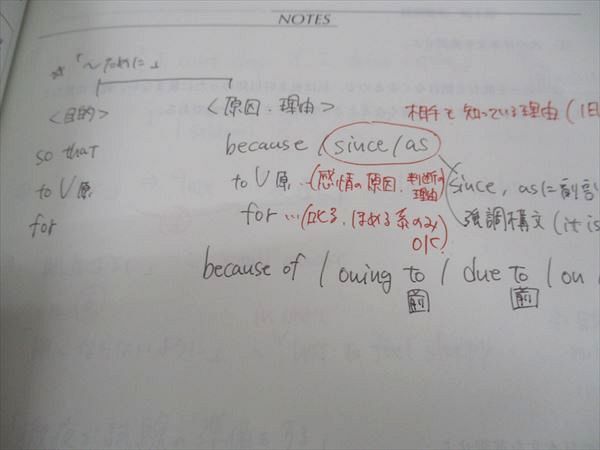 NOTES
☆「〜ために」
<目的> <原因・理由> 相手も知っている理由(1日
so that because / since / as
to V原 to V原 …(感情の原因、判断の理由) since, asに副
for for …(叱る、ほめる系のみOK) 強調構文(it is
because of / owing to / due to / on
前 前